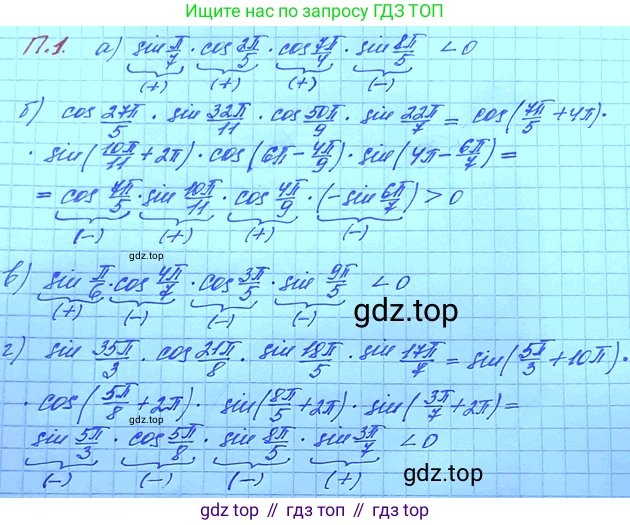 Нажмите, чтобы найти больше
решебников по запросу ГДЗ ТОП
П.1. а) sin π/7 · cos 2π/5 · cos 7π/4 · sin 8π/5 < 0
(+) (+) (+) (-)
б) cos 27π/5 · sin 32π/11 · cos 50π/9 · sin 22π/7 = cos(7π/5 + 4π) ·
gdz.top
· sin(10π/11 + 2π) · cos(6π - 4π/9) · sin(4π - 6π/7) =
= cos 7π/5 · sin 10π/11 · cos 4π/9 · (- sin 6π/7) > 0
(-) (+) (+) (-)
gdz.top
в) sin π/6 · cos 4π/7 · cos 3π/5 · sin 9π/5 < 0
(+) (-) (-) (-)
gdz.top
г) sin 35π/3 · cos 21π/8 · sin 18π/5 · sin 17π/7 = sin(5π/3 + 10π) ·
· cos(5π/8 + 2π) · sin(8π/5 + 2π) · sin(3π/7 + 2π) =
sin 5π/3 · cos 5π/8 · sin 8π/5 · sin 3π/7 < 0
(-) (-) (-) (+)
gdz.top
gdz.top // гдз топ // гдз.топ